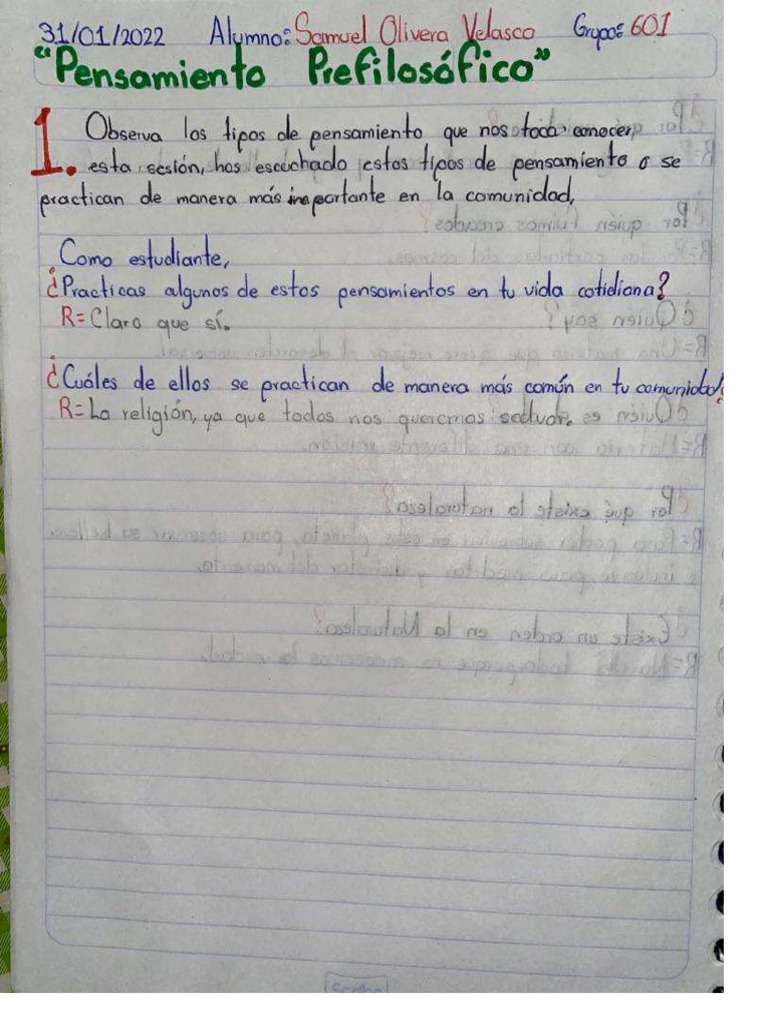 31/01/2022 Alumno: Samuel Olivera Velasco Grupo: 601
"Pensamiento Prefilosófico"
1. Observa los tipos de pensamiento que nos toca conocer,
esta sesión, has escuchado estos tipos de pensamiento o se
practican de manera más importante en la comunidad,
Como estudiante,
¿Practicas algunos de estos pensamientos en tu vida cotidiana?
R= Claro que sí.
¿Cuáles de ellos se practican de manera más común en tu comunidad?
R= La religión, ya que todos nos queremos salvar.